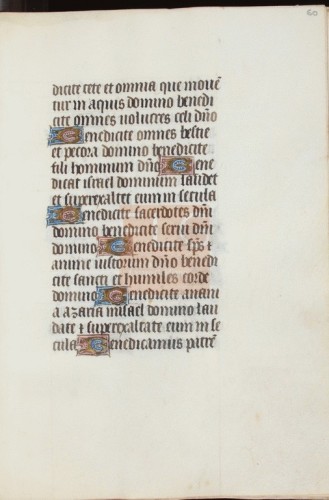 60
dicite cete et omnia que moue͂
tur in aquis domino benedi
cite omnes volucres celi dn͂o
Benedicite omnes bestie
et pecora domino benedicite
filii hominum dn͂o Bene
dicat israel dominum laudet
et superexaltet eum in secula
Benedicite sacerdotes dn͂i
domino benedicite serui dn͂i
domino Benedicite sp͂s ⁊
anime iustorum dn͂o benedi
cite sancti et humiles corde
domino Benedicite anani
a azaria misael domino lau
date ⁊ superexaltate eum in se
cula Benedicamus patre͂